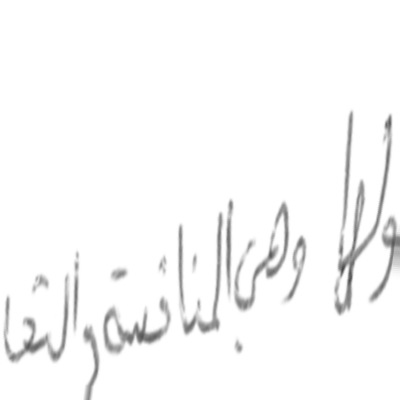 ولا وهي المنافسة والتعا